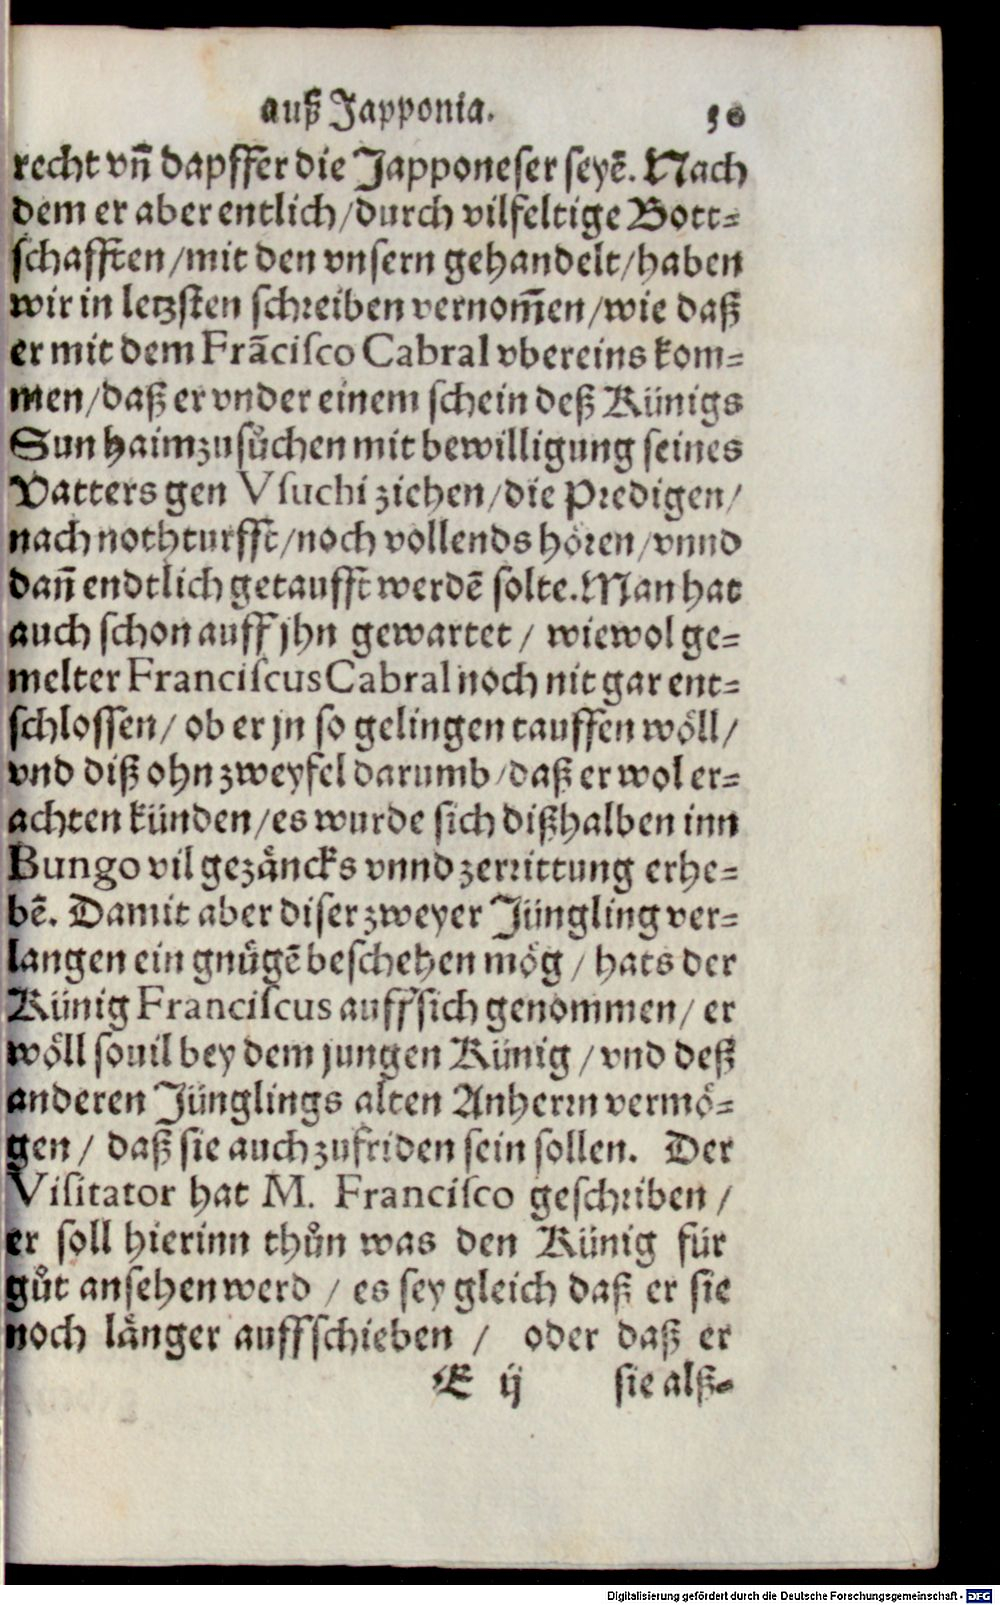 auß Japponia. 50
recht vn̄ dapffer die Japponeser seyē. Nach
dem er aber entlich/durch vilfeltige Bott⸗
schafften/mit den vnsern gehandelt/haben
wir in letzsten schreiben vernom̄en/wie daß
er mit dem Frācisco Cabral vbereins kom⸗
men/daß er vnder einem schein deß Künigs
Sun haimzusůchen mit bewilligung seines
Vatters gen Vsuchi ziehen/die Predigen/
nach nothturfft/noch vollends hören/vnnd
dan̄ endtlich getaufft werdē solte. Man hat
auch schon auff jhn gewartet / wiewol ge⸗
melter Franciscus Cabral noch nit gar ent⸗
schlossen/ ob er jn so gelingen tauffen wöll/
vnd diß ohn zweyfel darumb/daß er wol er⸗
achten künden/es wurde sich dißhalben inn
Bungo vil gezäncks vnnd zerrittung erhe⸗
bē. Damit aber diser zweyer Jüngling ver⸗
langen ein gnügē beschehen mög / hats der
Künig Franciscus auff sich genommen/ er
wöll souil bey dem jungen Künig / vnd deß
anderen Jünglings alten Anherrn vermö⸗
gen / daß sie auch zufriden sein sollen. Der
Visitator hat M. Francisco geschriben /
er soll hierinn thůn was den Künig für
gůt ansehen werd / es sey gleich daß er sie
noch länger auffschieben / oder daß er
E ij sie alß⸗
Digitalisierung gefördert durch die Deutsche Forschungsgemeinschaft - DFG